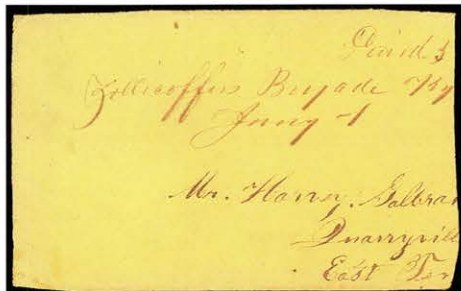 Paid 5
Zollicoffers Brigade Ky
Jany 1
Mr. Harvey Galbra
Quarryvill
East Ten